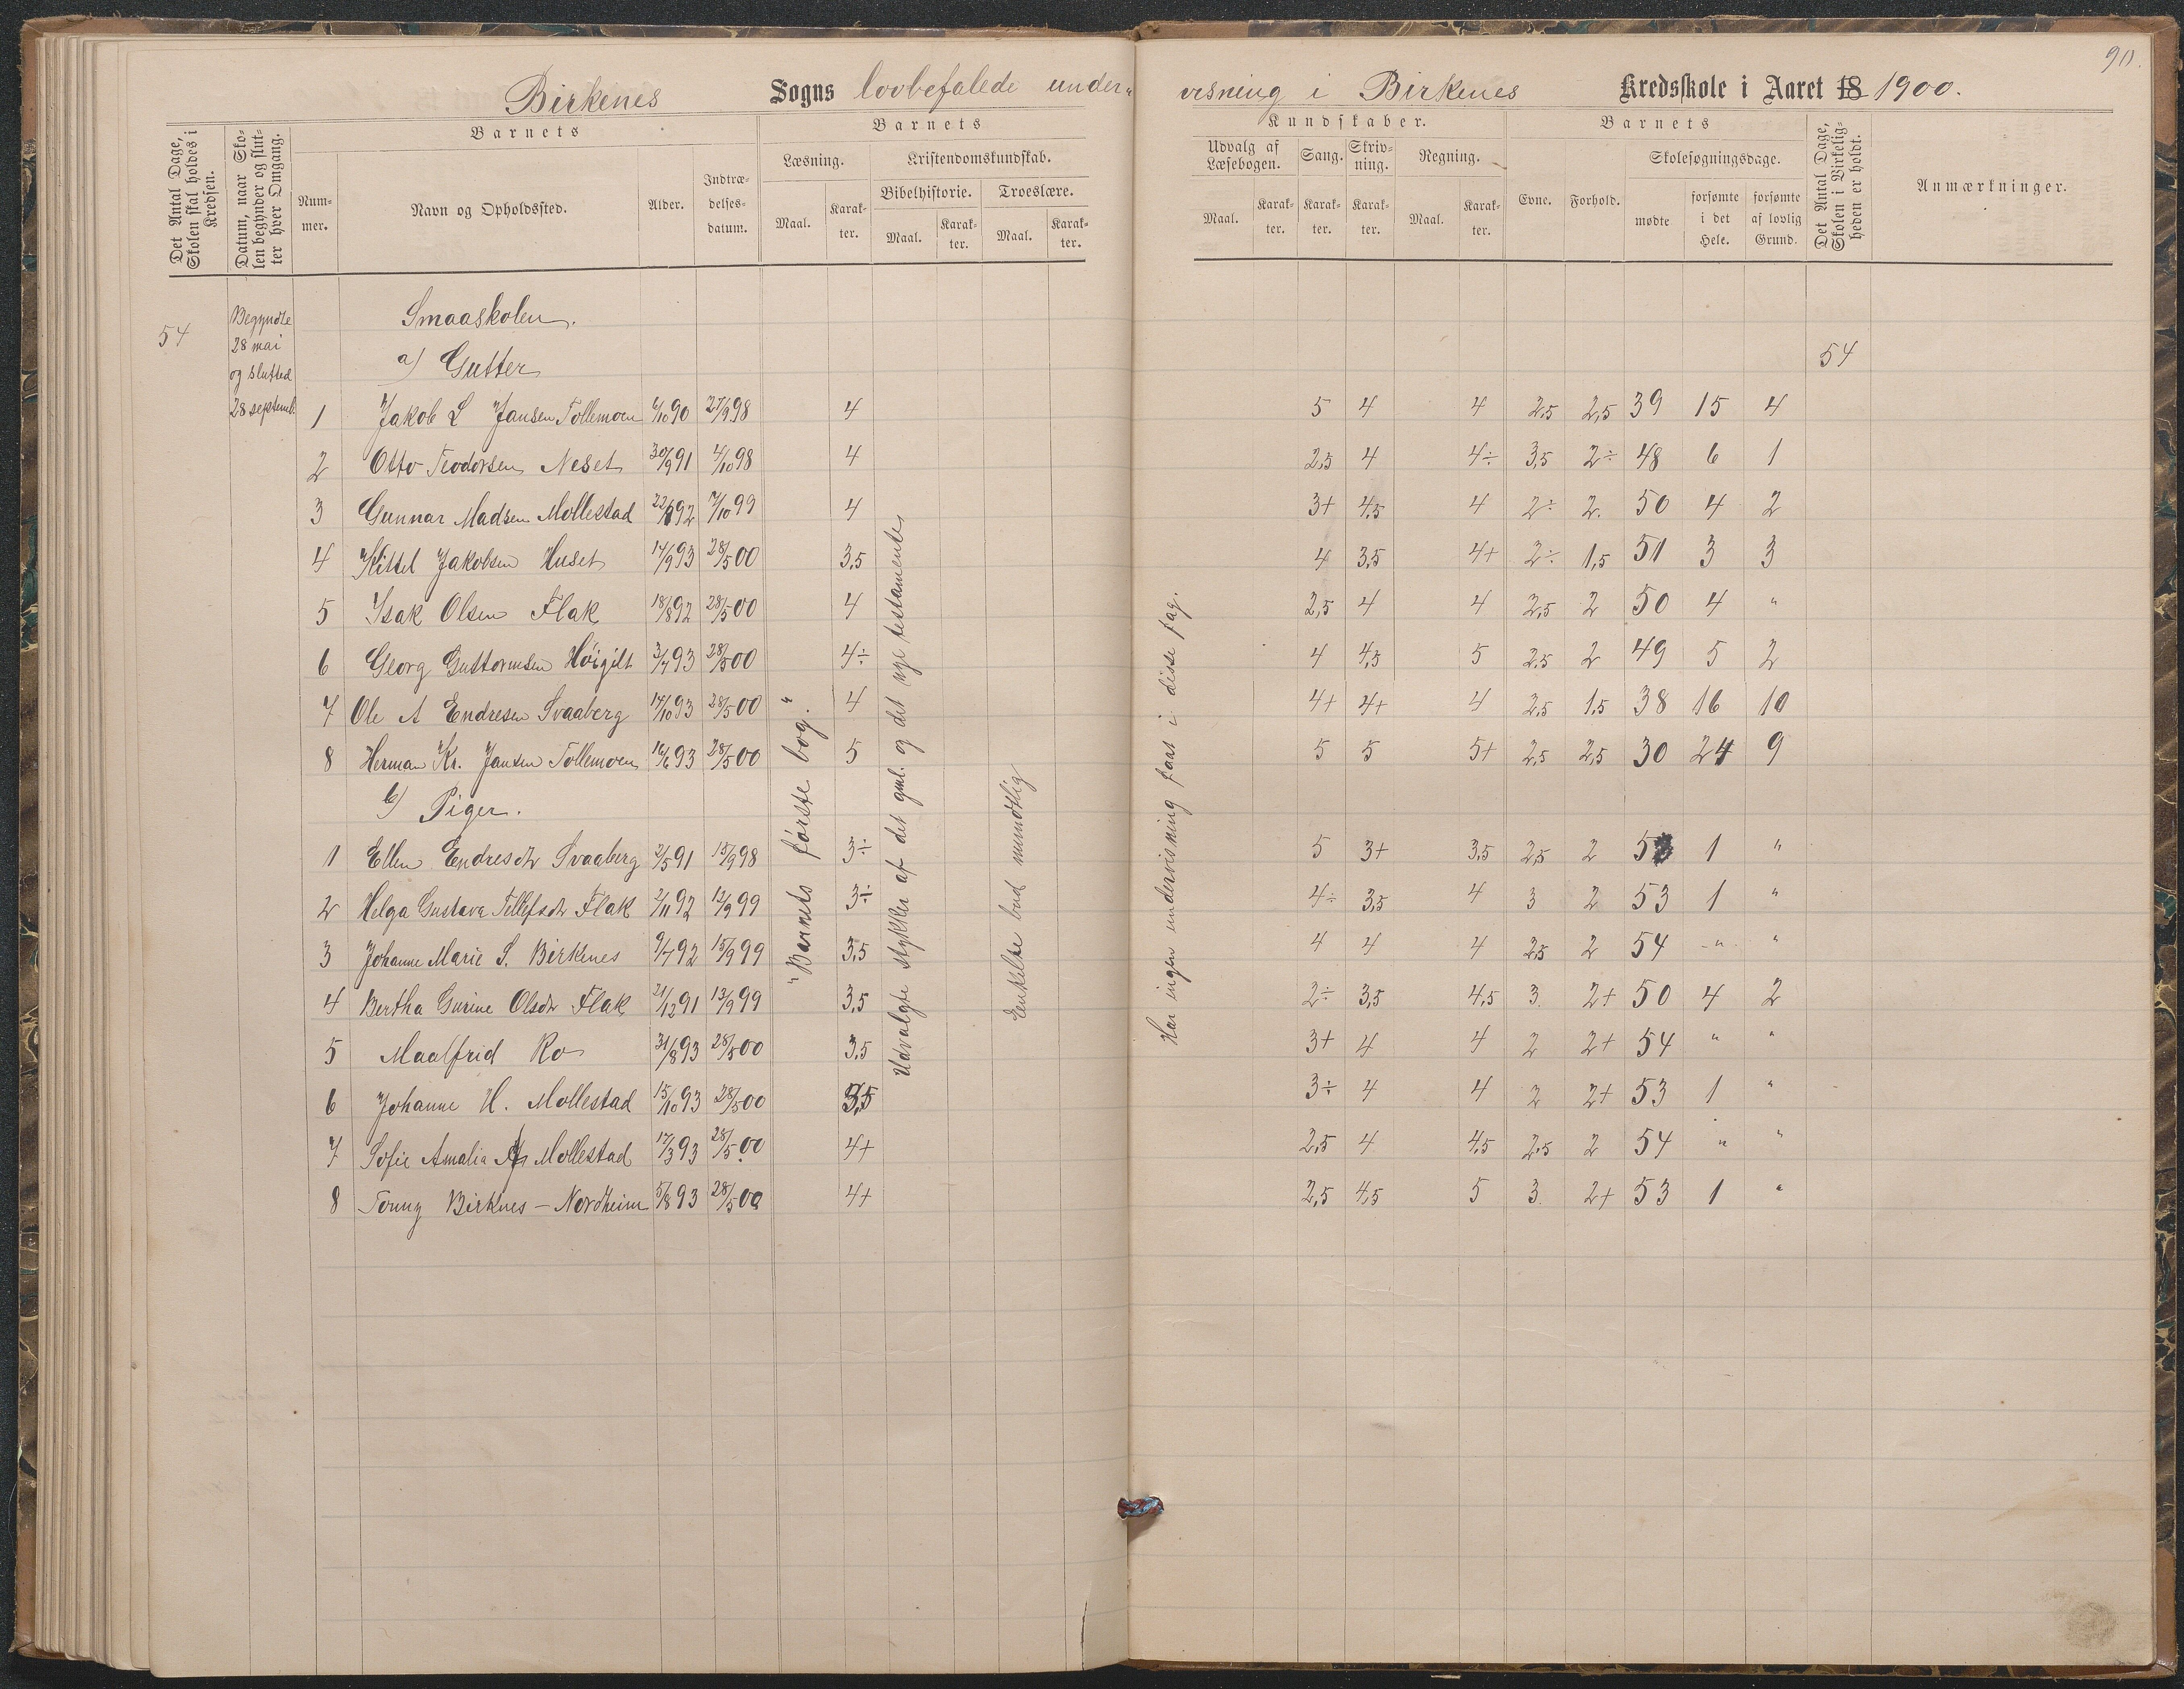 90.
Birkenes Sogns lovbefalede under- visning i Birkenes Kredsskole i Aaret 18 1900.
Det Antal Dage, Skolen skal holdes i Kredsen.
Datum, naar Skolen begynder og slutter hver Omgang.
Barnets
Nummer.
Navn og Opholdssted.
Alder.
Indtrædelsesdatum.
Barnets
Læsning.
Maal.
Karakter.
Kristendomskundskab.
Bibelhistorie.
Maal.
Karakter.
Troeslære.
Maal.
Karakter.
Kundskaber.
Udvalg af Læsebogen.
Maal.
Karakter.
Sang.
Karakter.
Skrivning.
Karakter.
Regning.
Maal.
Karakter.
Barnets
Evne.
Forhold.
Skolesøgningsdage.
mødte
forsømte i det Hele.
forsømte af lovlig Grund.
Det Antal Dage, Skolen i Virkeligheden er holdt.
Anmærkninger.
54
Begyndte
28 mai
og slutted
28 septemb.
Smaaskolen.
a) Gutter
54
1 Jakob L Jansen Tollemoen 6/10 90 27/9 98 4 5 4 4 2,5 2,5 39 15 4
2 Otto Teodorsen Neset 30/9 91 4/10 98 4 2,5 4 4÷ 3,5 2÷ 48 6 1
3 Gunnar Madsen Mollestad 22/8 92 7/10 99 4 3+ 4,5 4 2÷ 2. 50 4 2
4 Kittel Jakobsen Huset 14/9 93 28/5 00 3,5 4 3,5 4+ 2÷ 1,5 51 3 3
5 Isak Olsen Flak 18/8 92 28/5 00 4 2,5 4 4 2,5 2 50 4 "
6 Georg Guttormsen Høigilt 3/7 93 28/5 00 4÷ 4 4,5 5 2,5 2 49 5 2
7 Ole A Endresen Svaaberg 17/10 93 28/5 00 4 4+ 4+ 4 2,5 1,5 38 16 10
8 Herman Kr. Jansen Tollemoen 16/6 93 28/5 00 5 5 5 5+ 2,5 2,5 30 24 9
b) Piger.
1 Ellen Endresdtr Svaaberg 2/5 91 15/9 98 3÷ 5 3+ 3,5 2,5 2 53 1 "
2 Helga Gustava Tellefsdtr Flak 2/11 92 12/9 99 3÷ 4÷ 3,5 4 3 2 53 1 "
3 Johanne Marie S. Birkenes 9/7 92 15/9 99 3,5 4 4 4 2,5 2 54 " "
4 Bertha Gurine Olsdtr Flak 21/12 91 13/9 99 3,5 2÷ 3,5 4,5 3. 2+ 50 4 2
5 Maalfrid Ro 31/8 93 28/5 00 3,5 3+ 4 4 2 2+ 54 " "
6 Johanne H. Mollestad 15/10 93 28/5 00 3,5 3÷ 4 4 2 2+ 53 1 "
7 Sofie Amalia Mollestad 17/3 93 28/5 00 4+ 2,5 4 4,5 2,5 2 54 " "
8 Tonny Birknes - Nordheim 5/8 93 28/5 00 4+ 2,5 4,5 5 3. 2+ 53 1 "
"Barnets første bog."
Udvalgte stykker af det gml. og det nye testamente
Enkelte bud mundtlig
Har ingen undervisning faat i disse fag.